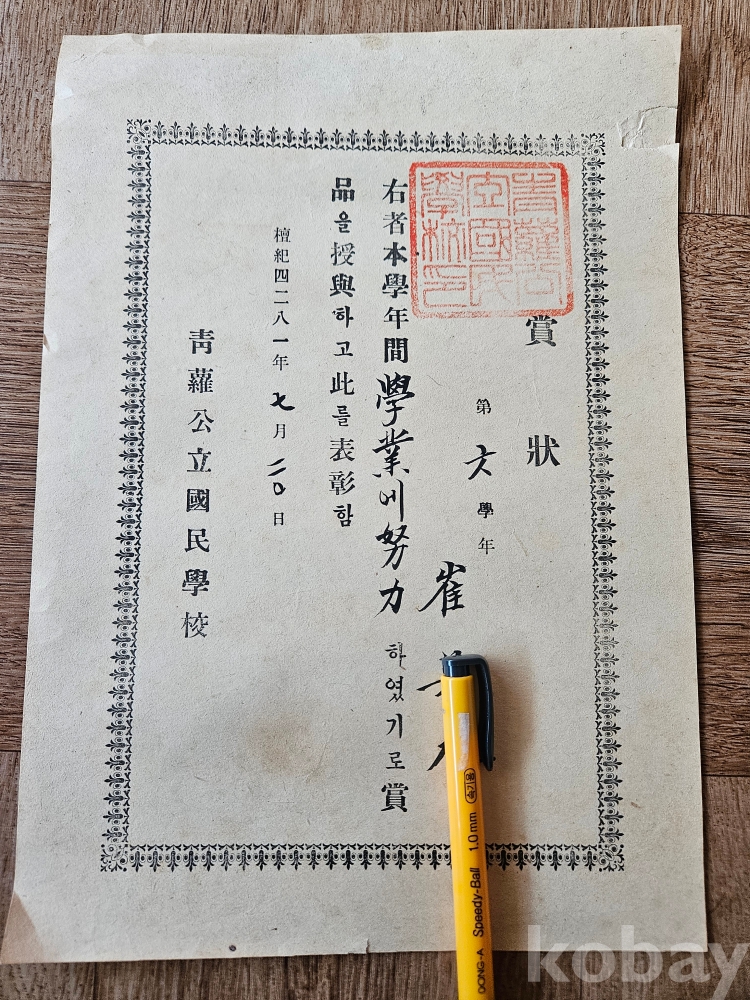 賞狀
第六學年
崔
右者本學年間學業에努力하였기로賞
品을授與하고此를表彰함
檀紀四二八一年七月二〇日
靑蘿公立國民學校
靑蘿公立國民學校印
DONG-A Speedy-Ball 1.0 mm 속기용
kobay